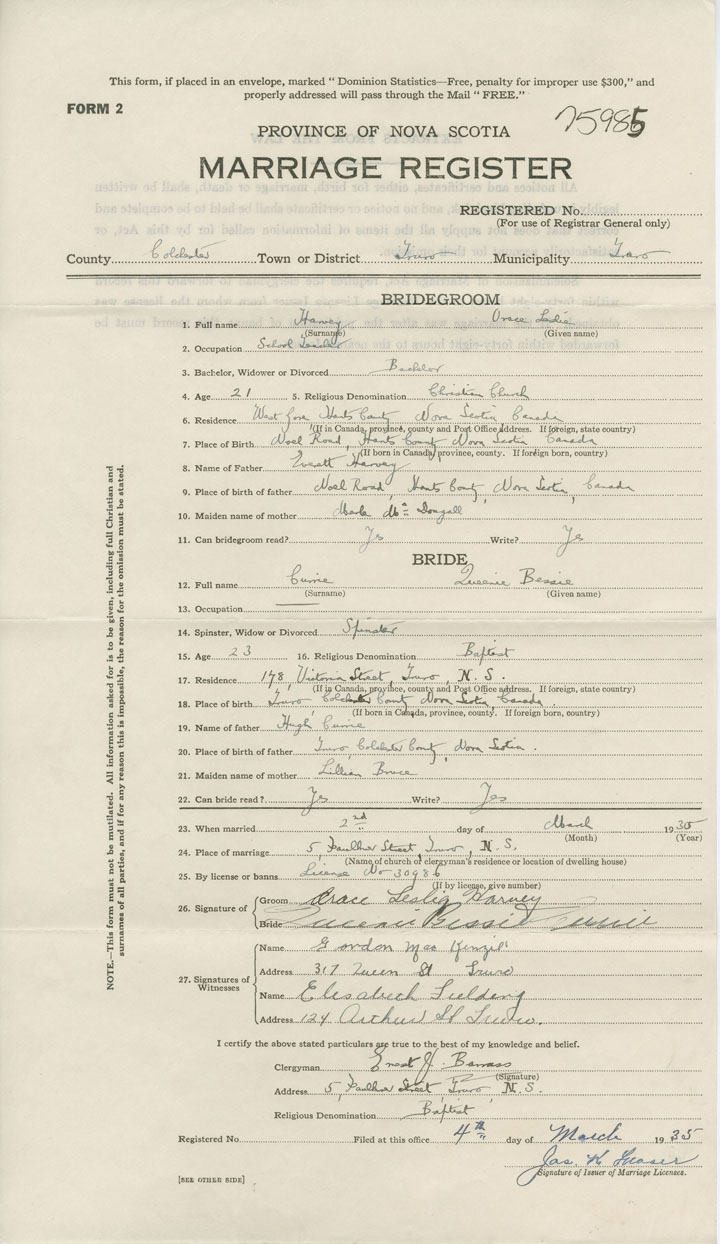 This form, if placed in an envelope, marked "Dominion Statistics—Free, penalty for improper use $300," and
properly addressed will pass through the Mail "FREE."
FORM 2
75985
PROVINCE OF NOVA SCOTIA
MARRIAGE REGISTER
REGISTERED No.
(For use of Registrar General only)
County Colchester Town or District Truro Municipality Truro
BRIDEGROOM
1. Full name Harvey Orace Leslie
(Surname) (Given name)
2. Occupation School Teacher
3. Bachelor, Widower or Divorced Bachelor
4. Age 21 5. Religious Denomination Christian Church
6. Residence West Gore Hants County Nova Scotia Canada
(If in Canada, province, county and Post Office Address. If foreign, state country)
7. Place of Birth Noel Road, Hants County Nova Scotia Canada
(If born in Canada, province, county. If foreign born, country)
8. Name of Father Everett Harvey
9. Place of birth of father Noel Road, Hants County, Nova Scotia, Canada
10. Maiden name of mother Mc Dougall
11. Can bridegroom read? Yes Write? Yes
BRIDE
12. Full name Currie Queenie Bessie
(Surname) (Given name)
13. Occupation
14. Spinster, Widow or Divorced Spinster
15. Age 23 16. Religious Denomination Baptist
17. Residence 178, Victoria Street, Truro, N. S.
(If in Canada, province, county and Post Office address. If foreign, state country)
18. Place of birth Truro Colchester County Nova Scotia, Canada
(If born in Canada, province, county. If foreign born, country)
19. Name of father Hugh Currie
20. Place of birth of father Truro, Colchester County, Nova Scotia.
21. Maiden name of mother Lillian Bruce
22. Can bride read? Yes Write? Yes
23. When married 2nd day of March 1935
(Month) (Year)
24. Place of marriage 5, Faulkner Street, Truro, N. S.
(Name of church of clergyman's residence or location of dwelling house)
25. By license or banns License No 30986
(If by license, give number)
26. Signature of Groom Orace Leslie Harvey
Bride Queenie Bessie Currie
27. Signatures of Witnesses
Name Gordon Mac Kenzie
Address 317 Queen St Truro
Name Elizabeth Fielding
Address 124 Arthur St Truro.
I certify the above stated particulars are true to the best of my knowledge and belief.
Clergyman Ernest J. Barrass
(Signature)
Address 5, Faulkner Street, Truro, N. S.
Religious Denomination Baptist
Registered No. Filed at this office 4th day of March 1935
Jas. H. Fraser
Signature of Issuer of Marriage Licenses.
[SEE OTHER SIDE]
NOTE.—This form must not be mutilated. All information asked for is to be given, including full Christian and
surnames of all parties, and if for any reason this is impossible, the reason for the omission must be stated.